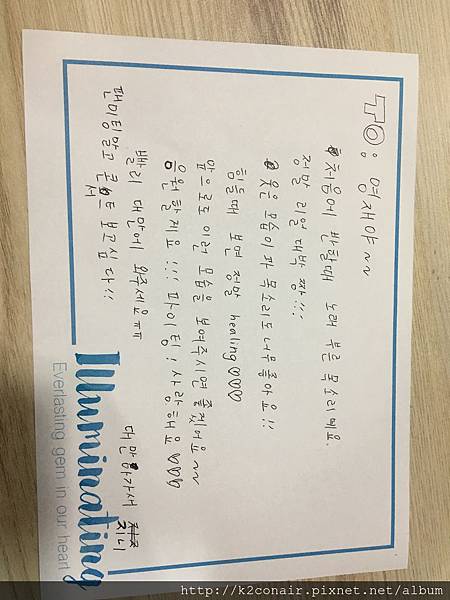 TO: 영재야~~
처음에 반할때 노래 부른 목소리예요.
정말 리얼 대박 짱!!!
웃은 모습이과 목소리도 너무 좋아요!!
힘들때 보면 정말 healing♡♡♡
앞으로도 이런 모습을 보여주시면 좋겠어요~~
응원할게요!!! 파이팅! 사랑해요♡♡♡
빨리 대만에 오주세요ㅠㅠ
팬미팅말고 콘서트 보고싶다!!
대만 가자에 지니
Illuminating
Everlasting gem in our heart
http://k2conair.pixnet.net/album